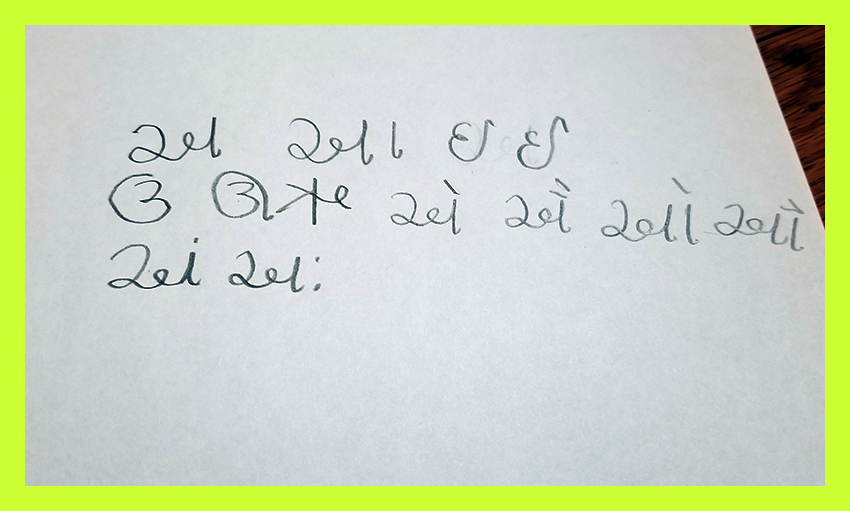 અ આ ઇ ઈ
ઉ ઊ ઋ એ ઐ ઓ ઔ
અં અઃ